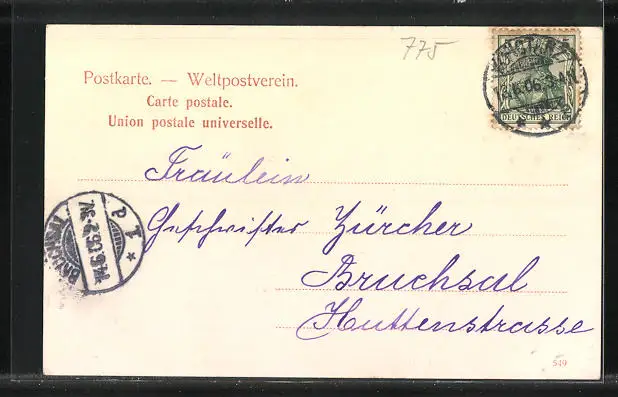 775
Postkarte. — Weltpostverein.
Carte postale.
Union postale universelle.
5
DEUTSCHES REICH
Fräulein
Geschwister Zürcher
Bruchsal
Huttenstrasse
549